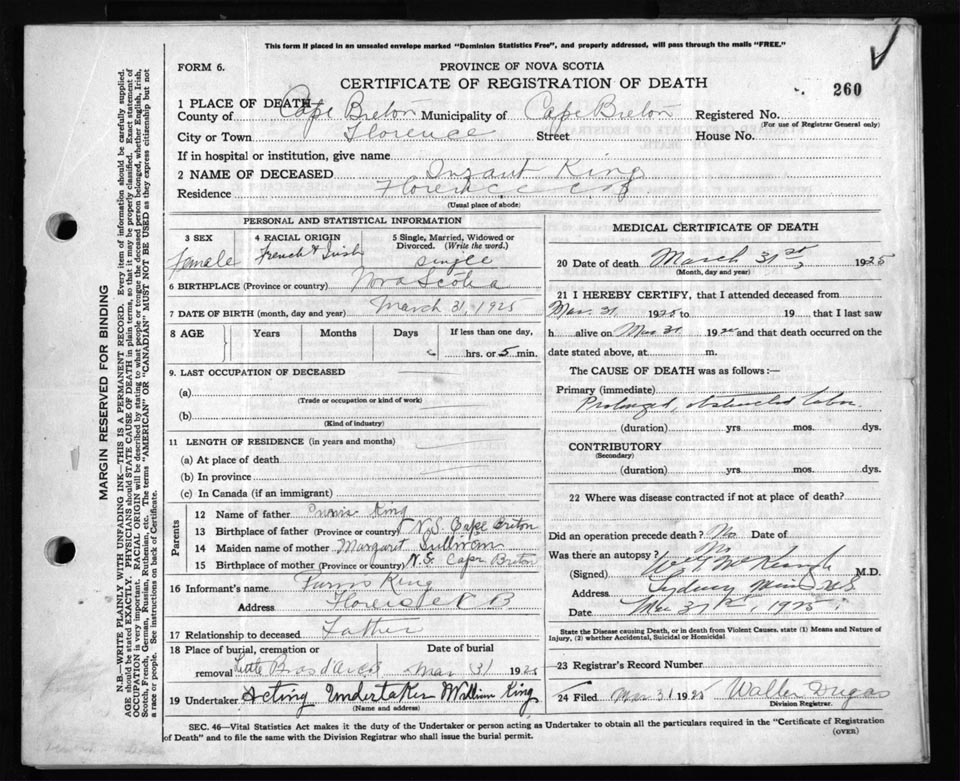 This form if placed in an unsealed envelope marked "Dominion Statistics Free", and properly addressed, will pass through the mails "FREE."
FORM 6.
PROVINCE OF NOVA SCOTIA
CERTIFICATE OF REGISTRATION OF DEATH
260
1 PLACE OF DEATH—
County of Cape Breton Municipality of Cape Breton Registered No.
(For use of Registrar General only)
City or Town Florence Street House No.
If in hospital or institution, give name
2 NAME OF DECEASED Infant King
Residence Florence C B
(Usual place of abode)
PERSONAL AND STATISTICAL INFORMATION
3 SEX 4 RACIAL ORIGIN 5 Single, Married, Widowed or Divorced. (Write the word.)
Female French & Irish single
6 BIRTHPLACE (Province or country) Nova Scotia
7 DATE OF BIRTH (month, day and year) March 31, 1925
8 AGE Years Months Days If less than one day,
hrs. or 5 min.
9. LAST OCCUPATION OF DECEASED
(a)
(Trade or occupation or kind of work)
(b)
(Kind of industry)
11 LENGTH OF RESIDENCE (in years and months)
(a) At place of death
(b) In province
(c) In Canada (if an immigrant)
Parents
12 Name of father King
13 Birthplace of father (Province or country) N.S. Cape Breton
14 Maiden name of mother Margaret Sullivan
15 Birthplace of mother (Province or country) N.S. Cape Breton
16 Informant's name King
Address Florence C B
17 Relationship to deceased Father
18 Place of burial, cremation or removal Little Bras d'or Date of burial Mar 31 1925
19 Undertaker Acting Undertaker William King
(Name and address)
MEDICAL CERTIFICATE OF DEATH
20 Date of death March 31st, 1925
(Month, day and year)
21 I HEREBY CERTIFY, that I attended deceased from
Mar. 31 1925 to 19 , that I last saw
h alive on Mar 31 1925 and that death occurred on the
date stated above, at m.
The CAUSE OF DEATH was as follows:—
Primary (immediate)
Prolonged, obstructed labor.
(duration) yrs mos. dys.
CONTRIBUTORY
(Secondary)
(duration) yrs. mos. dys.
22 Where was disease contracted if not at place of death?
Did an operation precede death? No Date of
Was there an autopsy? No
(Signed) M.D.
Address Sydney Mines N.S.
Date Mar 31st, 1925.
State the Disease causing Death, or in death from Violent Causes, state (1) Means and Nature of Injury, (2) whether Accidental, Suicidal or Homicidal.
23 Registrar's Record Number
24 Filed Mar 31 1925 Walter Dugas
Division Registrar.
SEC. 46—Vital Statistics Act makes it the duty of the Undertaker or person acting as Undertaker to obtain all the particulars required in the "Certificate of Registration
of Death" and to file the same with the Division Registrar who shall issue the burial permit.
(OVER)
MARGIN RESERVED FOR BINDING
N.B.—WRITE PLAINLY WITH UNFADING INK—THIS IS A PERMANENT RECORD. Every item of information should be carefully supplied.
AGE should be stated EXACTLY. PHYSICIANS should STATE CAUSE OF DEATH in plain terms, so that it may be properly classified. Exact statement of
OCCUPATION is very important. RACIAL ORIGIN will be described by stating to what people or tongue the deceased person belonged, whether English, Irish,
Scotch, French, German, Russian, Ruthenian, etc. The terms "AMERICAN" OR "CANADIAN" MUST NOT BE USED as they express citizenship but not
a race or people. See instructions on back of Certificate.